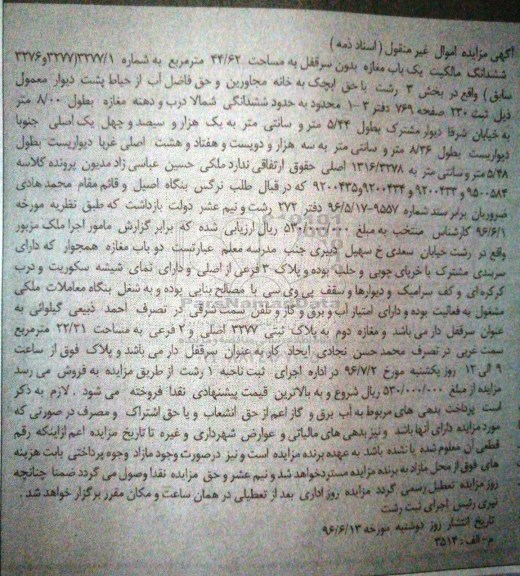 آگهی مزایده اموال غیر منقول (اسناد ذمه)
ششدانگ مالکیت یک باب مغازه بدون سرقفل به مساحت ۴۴/۶۲ مترمربع به شماره ۳۲۷۷/۳۲۷۷/۱و۳۲۷۶
سابق) واقع در بخش ۳ رشت با حق ایجک به خانه مجاورین و حق فاضل آب از حیاط پشت دیوار معمول
ذیل ثبت ۲۳۰ صفحه ۷۶۹ دفتر ۳-۱ محدود به حدود ششدانگی شمالا درب و دهنه مغازه بطول ۸/۰۰ متر
به خیابان شرقا دیوار مشترک بطول ۵/۴۳ متر و سانتی متر به یک هزار و سیصد و چهل یک اصلی جنوبا
دیواریست بطول ۸/۳۶ متر و سانتی متر به سه هزار و دویست و هفتاد و هشت اصلی غربا دیواریست بطول
۵/۴۸ متر و سانتی متر به ۱۳۱۶/۳۲۷۸ اصلی حقوق ارتفاقی ندارد ملکی حسین عباسی زاد مدیون پرونده کلاسه
۹۵۰۰۵۸۴ و ۹۲۰۰۴۳۳ و ۹۲۰۰۴۳۴و۹۲۰۰۴۳۵ که در قبال طلب نرگس بنگاه اصیل و قائم مقام محمد هادی
ضروریان برابر سند شماره ۹۵۵۷-۹۶/۵/۱۷ دفتر ۲۷۲ رشت و نیم عشر دولت بازداشت که طبق نظریه مورخه
۹۶/۶/۱ کارشناس منتخب به مبلغ ۵۳۰/۰۰۰/۰۰۰ ریال ارزیابی شده که برابر گزارش مامور اجرا ملک مزبور
واقع در رشت خیابان سعدی خ سهیل دبیری جنب مدرسه معلم عبارتست دو باب مغازه همجوار که دارای
سربندی مشترک با خرپای چوبی و حلب بوده و پلاک ۳ فرعی از اصلی و دارای نمای شیشه سکوریت و درب
کرکره ای و کف سرامیک و دیوارها و سقف پی وی سی با مصالح بنایی بوده و به شغل بنگاه معاملات ملکی
مشغول به فعالیت بوده و دارای امتیاز آب و برق و گاز و تلفن سمت شرقی در تصرف احمد ذبیعی گیلوائی به
عنوان سرقفل دار می باشد و مغازه دوم به پلاک ثبتی ۳۲۷۷ اصلی و ۲ فرعی به مساحت ۲۲/۲۱ مترمربع
سمت غربی در تصرف محمد حسن نجادی ایجاد کار به عنوان سرقفل دار می باشد و پلاک فوق از ساعت
۹ الی ۱۲ روز یکشنبه مورخ ۹۶/۷/۲ در اداره اجرای ثبت ناحیه ۱ رشت از طریق مزایده به فروش می رسد
مزایده از مبلغ ۵۳۰/۰۰۰/۰۰۰ ریال شروع و به بالاترین قیمت پیشنهادی نقدا فروخته می شود . لازم به ذکر
است پرداخت بدهی های مربوط به آب برق و گاز اعم از حق انشعاب و یا حق اشتراک و مصرف در صورتی که
مورد مزایده دارای آنها باشد و نیز بدهی های مالیاتی و عوارض شهرداری و غیره تا تاریخ مزایده اعم ازاینکه رقم
قطعی آن معلوم شده یا نشده باشد به عهده برنده مزایده است و نیز درصورت وجود مازاد وجوه پرداختی بابت هزینه
های فوق از محل مازاد به برنده مزایده مسترد خواهد شد و نیم عشر و حق مزایده نقدا وصول می گردد ضمنا چنانچه
روز مزایده تعطیل رسمی گردد مزایده روز اداری بعد از تعطیلی در همان ساعت و مکان مقرر برگزار خواهد شد .
نیری رئیس اجرای ثبت رشت
تاریخ انتشار روز دوشنبه مورخه ۹۶/۶/۱۳
م-الف: ۳۵۱۴
ParsNamadData